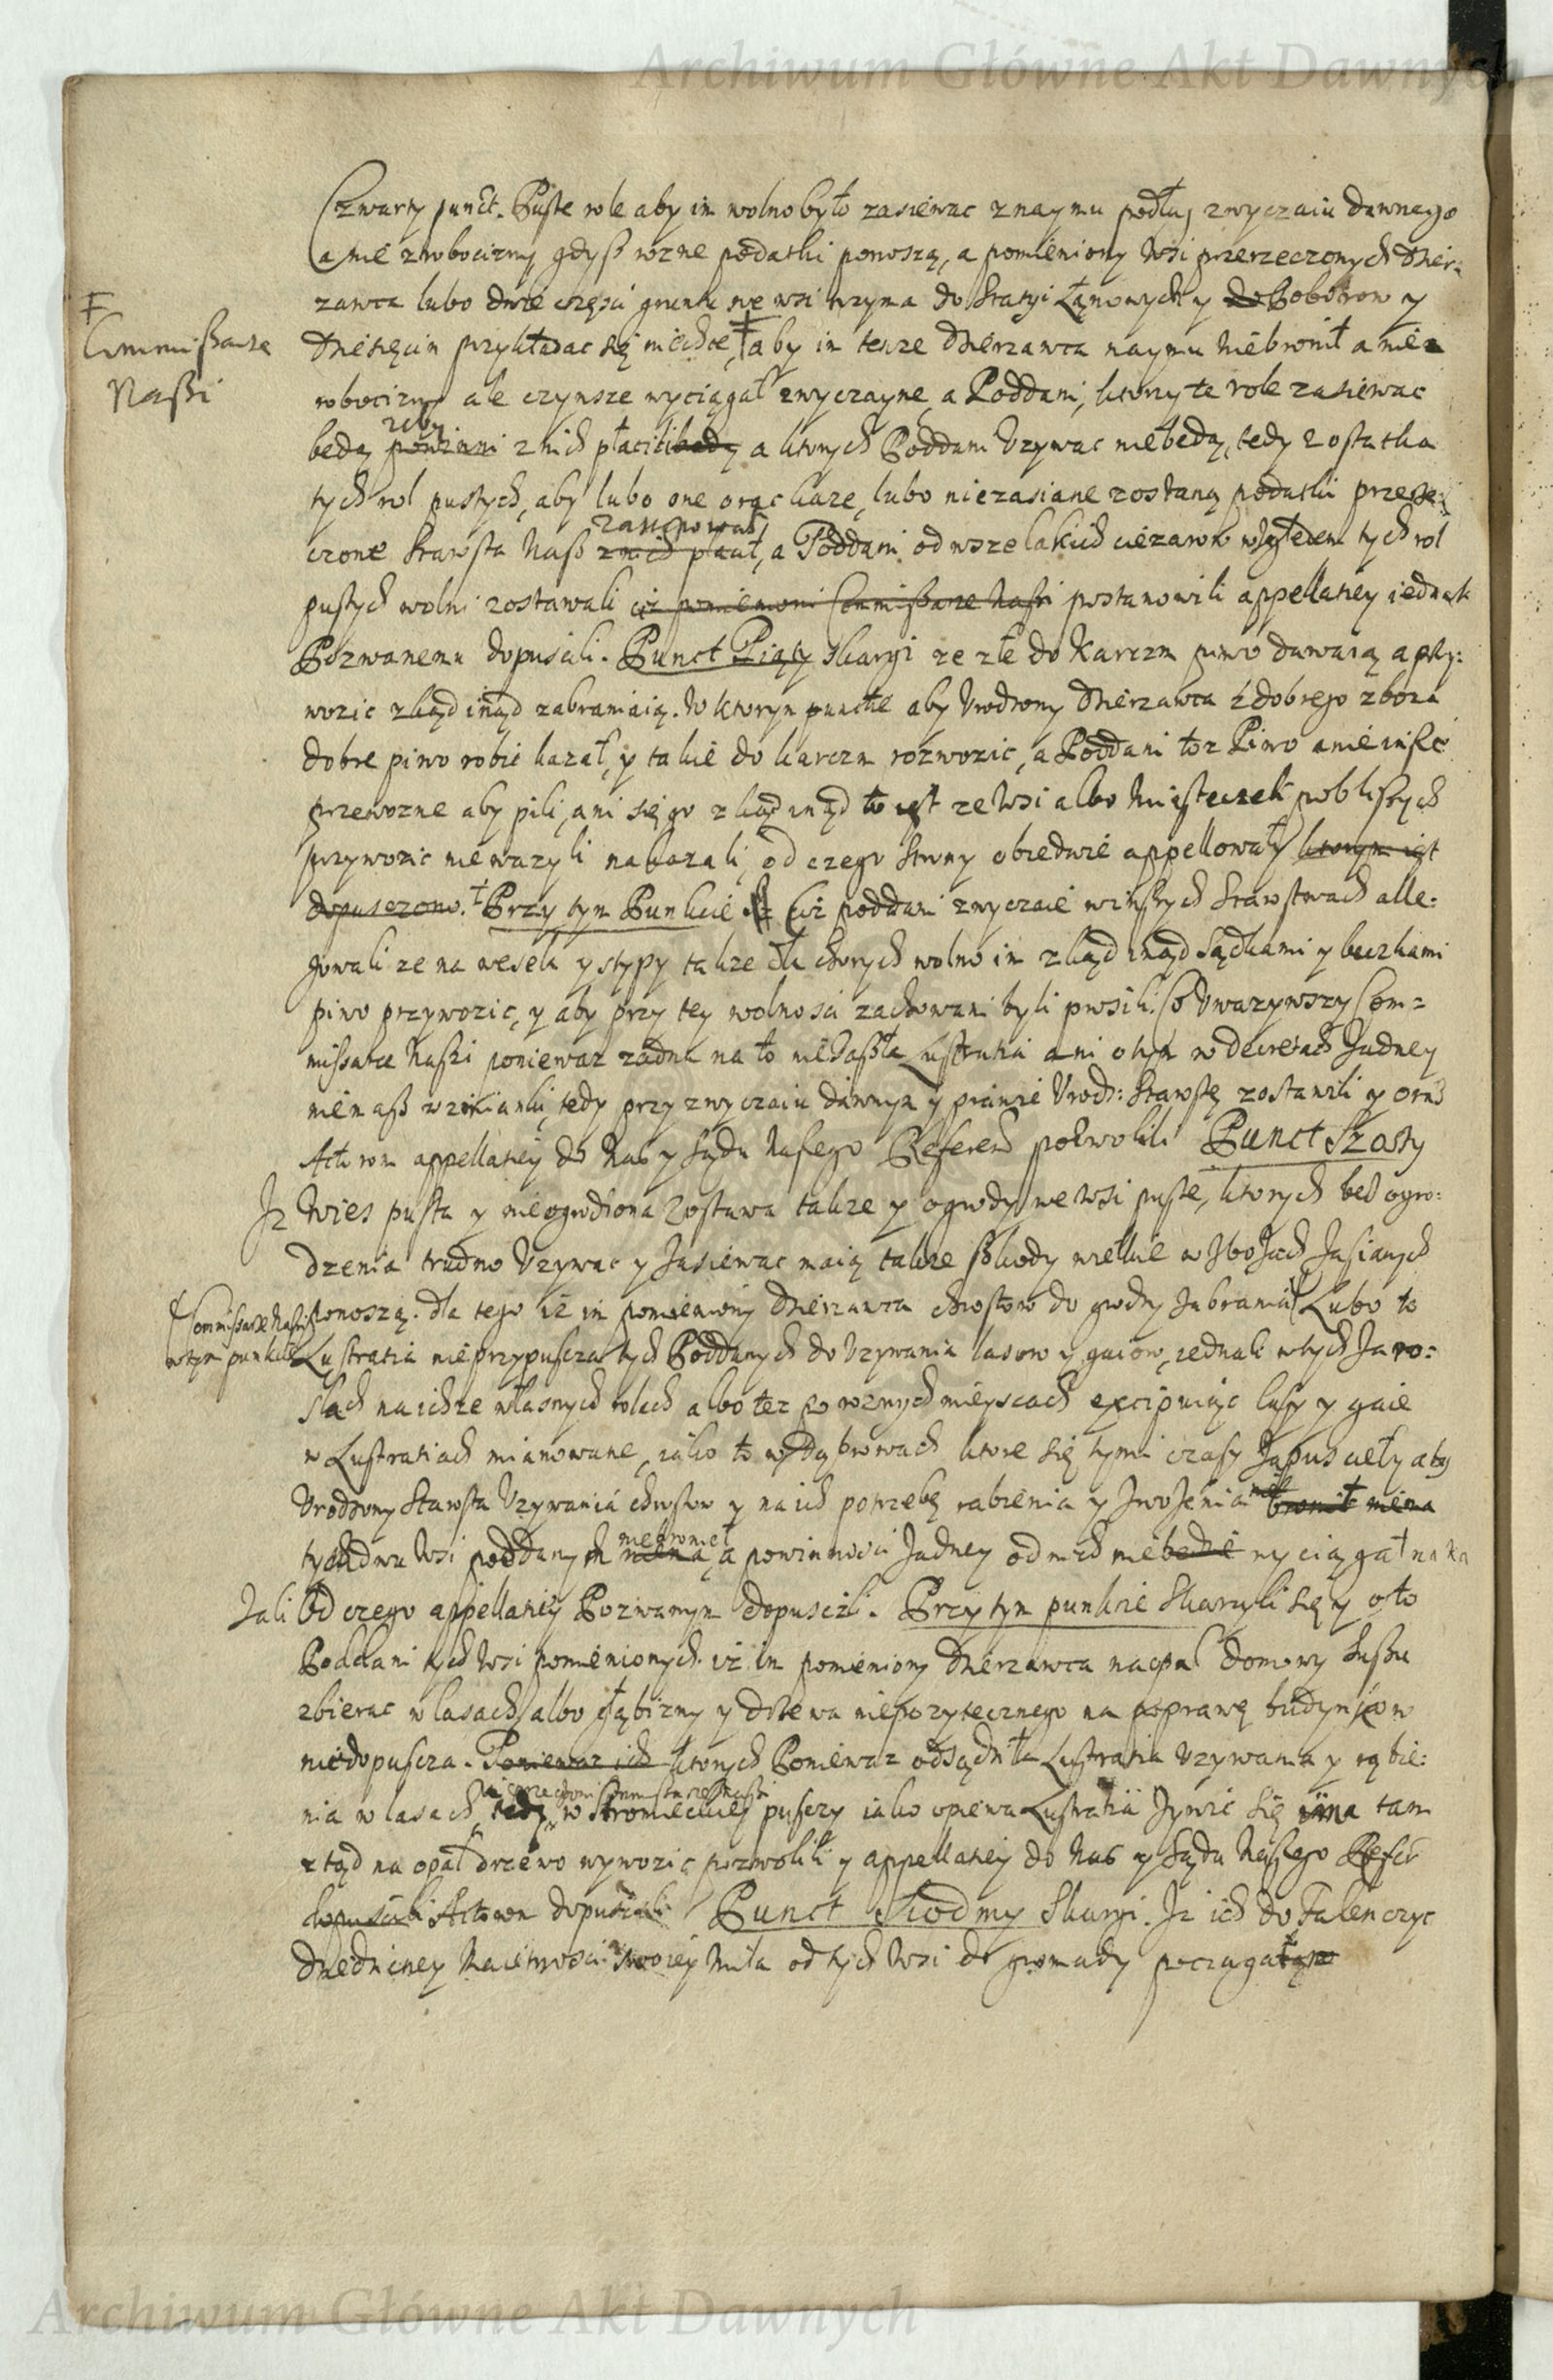 Archiwum Główne Akt Dawnych
Czwarty punct. Puste role aby im wolno było zasiewac z naymu podług zwyczaiu dawnego
a nie z robocizny gdysz rozne podatki ponoszą, a pomieniony wsi przerzeczonych dzier:
zawca lubo dwie częsci gruntu we wsi trzyma do Stacyi Łanowych y do Poborow y
Ŧ
Commissarze
Nassi
Dziesięcin przykładac się niechce, Ŧ aby im tesze Dzierzawca naymu niebronił a nie z
robocizny ale czynsze wyciągał zwyczayne, a Poddani, ktorzy te role zasiewac
zeby
bedą powinni z nich płacili bedą a ktorych Poddani Uzywac niebedą, tedy z ostatka
tych rol pustych, aby lubo one orac kaze, lubo niezasiane zostaną podatki przerze:
zastępował
czone Starosta Nasz z nich płacił, a Poddani od wszelakich ciezarow względem tych rol
pustych wolni zostawali ciz pomienieni Commissarze Nassi postanowili appellatiey iednak
Pozwanemu dopuscili. Punct Piąty Skargi ze złe do Karczm piwo dawaią a przy:
wozic zkąd inąd zabraniaią. W ktorym puncte aby Urodzony Dzierzawca z dobrego zboza
dobre piwo robic kazał, y takie do karczm rozwozic, a Poddani toz Piwo a nie insze
przewozne aby pili, ani się go zkąd inąd to iest ze Wsi albo Miasteczek pobliszych
przywozic niewazyli nakazali, od czego Strony obiedwie appellowały ktorym iest
dopusczono. Ŧ Przy tym Punkcie Ciz poddani zwyczaie w inszych Starostwach alle:
gowali ze na wesela y stypy takze dla chorych wolno im zkąd inąd sądkami y beczkami
piwo przywozic, y aby przy tey wolnosci zachowani byli prosili. Co Uwazywszy Com=
missarze Naszi poniewaz zadna na to niezaszła Lustratia ani o tym w decretach zadney
niemasz wzmianki, tedy przy zwyczaiu dawnym y prawie Urodz: Starostę zostawili y oraz
Actorom appellatiey do Nas y Sądu Naszego Referen pozwolili Punct Szosty
Iz Wies pusta y nieogrodzona zostawa takze y ogrody we Wsi puste, ktorych bez ogro:
dzenia trudno Uzywac y zasiewac maią takze szkody wielkie w zbozach zasianych
Commissarze Nassi
w tym punkcie
ponoszą. dla tego iz im pomieniony Dzierzawca chrostow do grodzy zabrania Lubo to
Lustratia nieprzypuszcza tych Poddanych do Uzywania lasow y gaiow, iednak w tych Zaro:
slach na ichze własnych rolach albo tez po roznych mieyscach excipuiąc lasy y gaie
w Lustratiach mianowane, iako to w Dąbrowach ktore się tymi czasy zapusciełÿ aby
Urodzony Starosta Uzywania chrostow y na ich potrzebę rabienia y zwozenia
niebronieł
tych dwu Wsi poddanym a powinnosci zadney od nich niebedzie wyciągał naka
zali Od czego appellatiey Pozwanym dopuscili. Przy tym punkcie Skarzyli się y o to
Poddani tych Wsi pomienionych iz im pomieniony Dzierzawca na opał domowy suszu
zbierac w lasach albo głąbizny y drzewa niepozytecznego na poprawę budynkow
niedopuscza. Poniewaz ich ktorych Poniewaz odsądziła Lustratia Uzywania y rąbie:
nia w lasach, tedy w Stromieckiey pusczy iako opiewa Lustratia Zywic się tam
ztąd na opał drzewo wywozic pozwolili y appellatiey do Nas y Sądu Naszego Refer
dopuscili Actorom dopuscili Punct Siodmy Skargi. Iz ich do Falenczyc
Dziedziczney Maiętnosci swoiey Mila od tych Wsi do gromady pociąga
Archiwum Główne Akt Dawnych